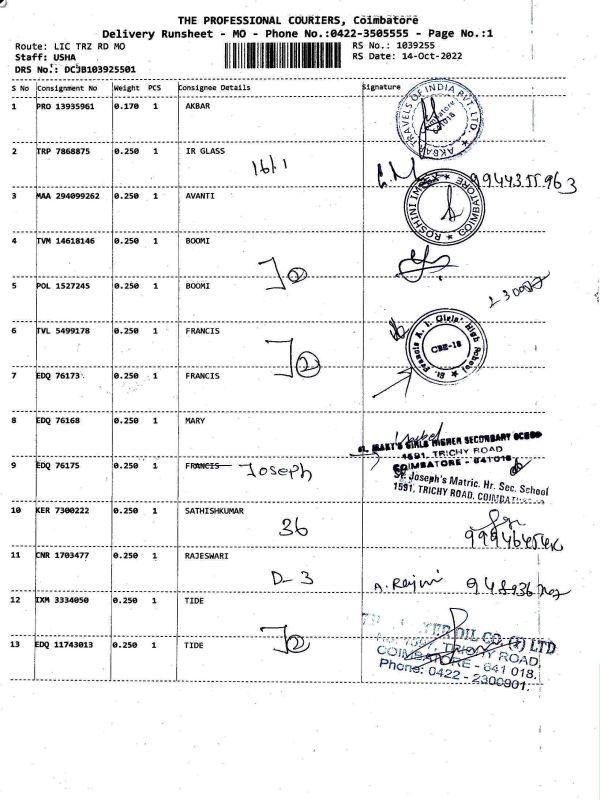 THE PROFESSIONAL COURIERS, Coimbatore
Delivery Runsheet - MO - Phone No.:0422-3505555 - Page No.:1
Route: LIC TRZ RD MO
RS No.: 1039255
Staff: USHA
RS Date: 14-Oct-2022
DRS No.: DCJB103925501
S No Consignment No Weight PCS Consignee Details Signature
1 PRO 13935961 0.170 1 AKBAR
AKBAR TRAVELS OF INDIA PVT. LTD.
2 TRP 7868875 0.250 1 IR GLASS
16/1
3 MAA 294099262 0.250 1 AVANTI
ROSHINI IMPEX COIMBATORE
4 TVM 14618146 0.250 1 BOOMI
5 POL 1527245 0.250 1 BOOMI
6 TVL 5499178 0.250 1 FRANCIS
St. Francis A. I. Girls' High School
CBE-18
7 EDQ 76173 0.250 1 FRANCIS
8 EDQ 76168 0.250 1 MARY
ST. MARY'S GIRLS HIGHER SECONDARY SCHOOL
1591, TRICHY ROAD
COIMBATORE - 641018
9 EDQ 76175 0.250 1 FRANCIS Joseph
St. Joseph's Matric. Hr. Sec. School
1591, TRICHY ROAD, COIMBATORE
10 KER 7300222 0.250 1 SATHISHKUMAR
36
11 CNR 1703477 0.250 1 RAJESWARI
D-3
12 IXM 3334050 0.250 1 TIDE
13 EDQ 11743013 0.250 1 TIDE
OIL CO. (P) LTD
TRICHY ROAD,
COIMBATORE - 641 018.
Phone: 0422 - 2300901.